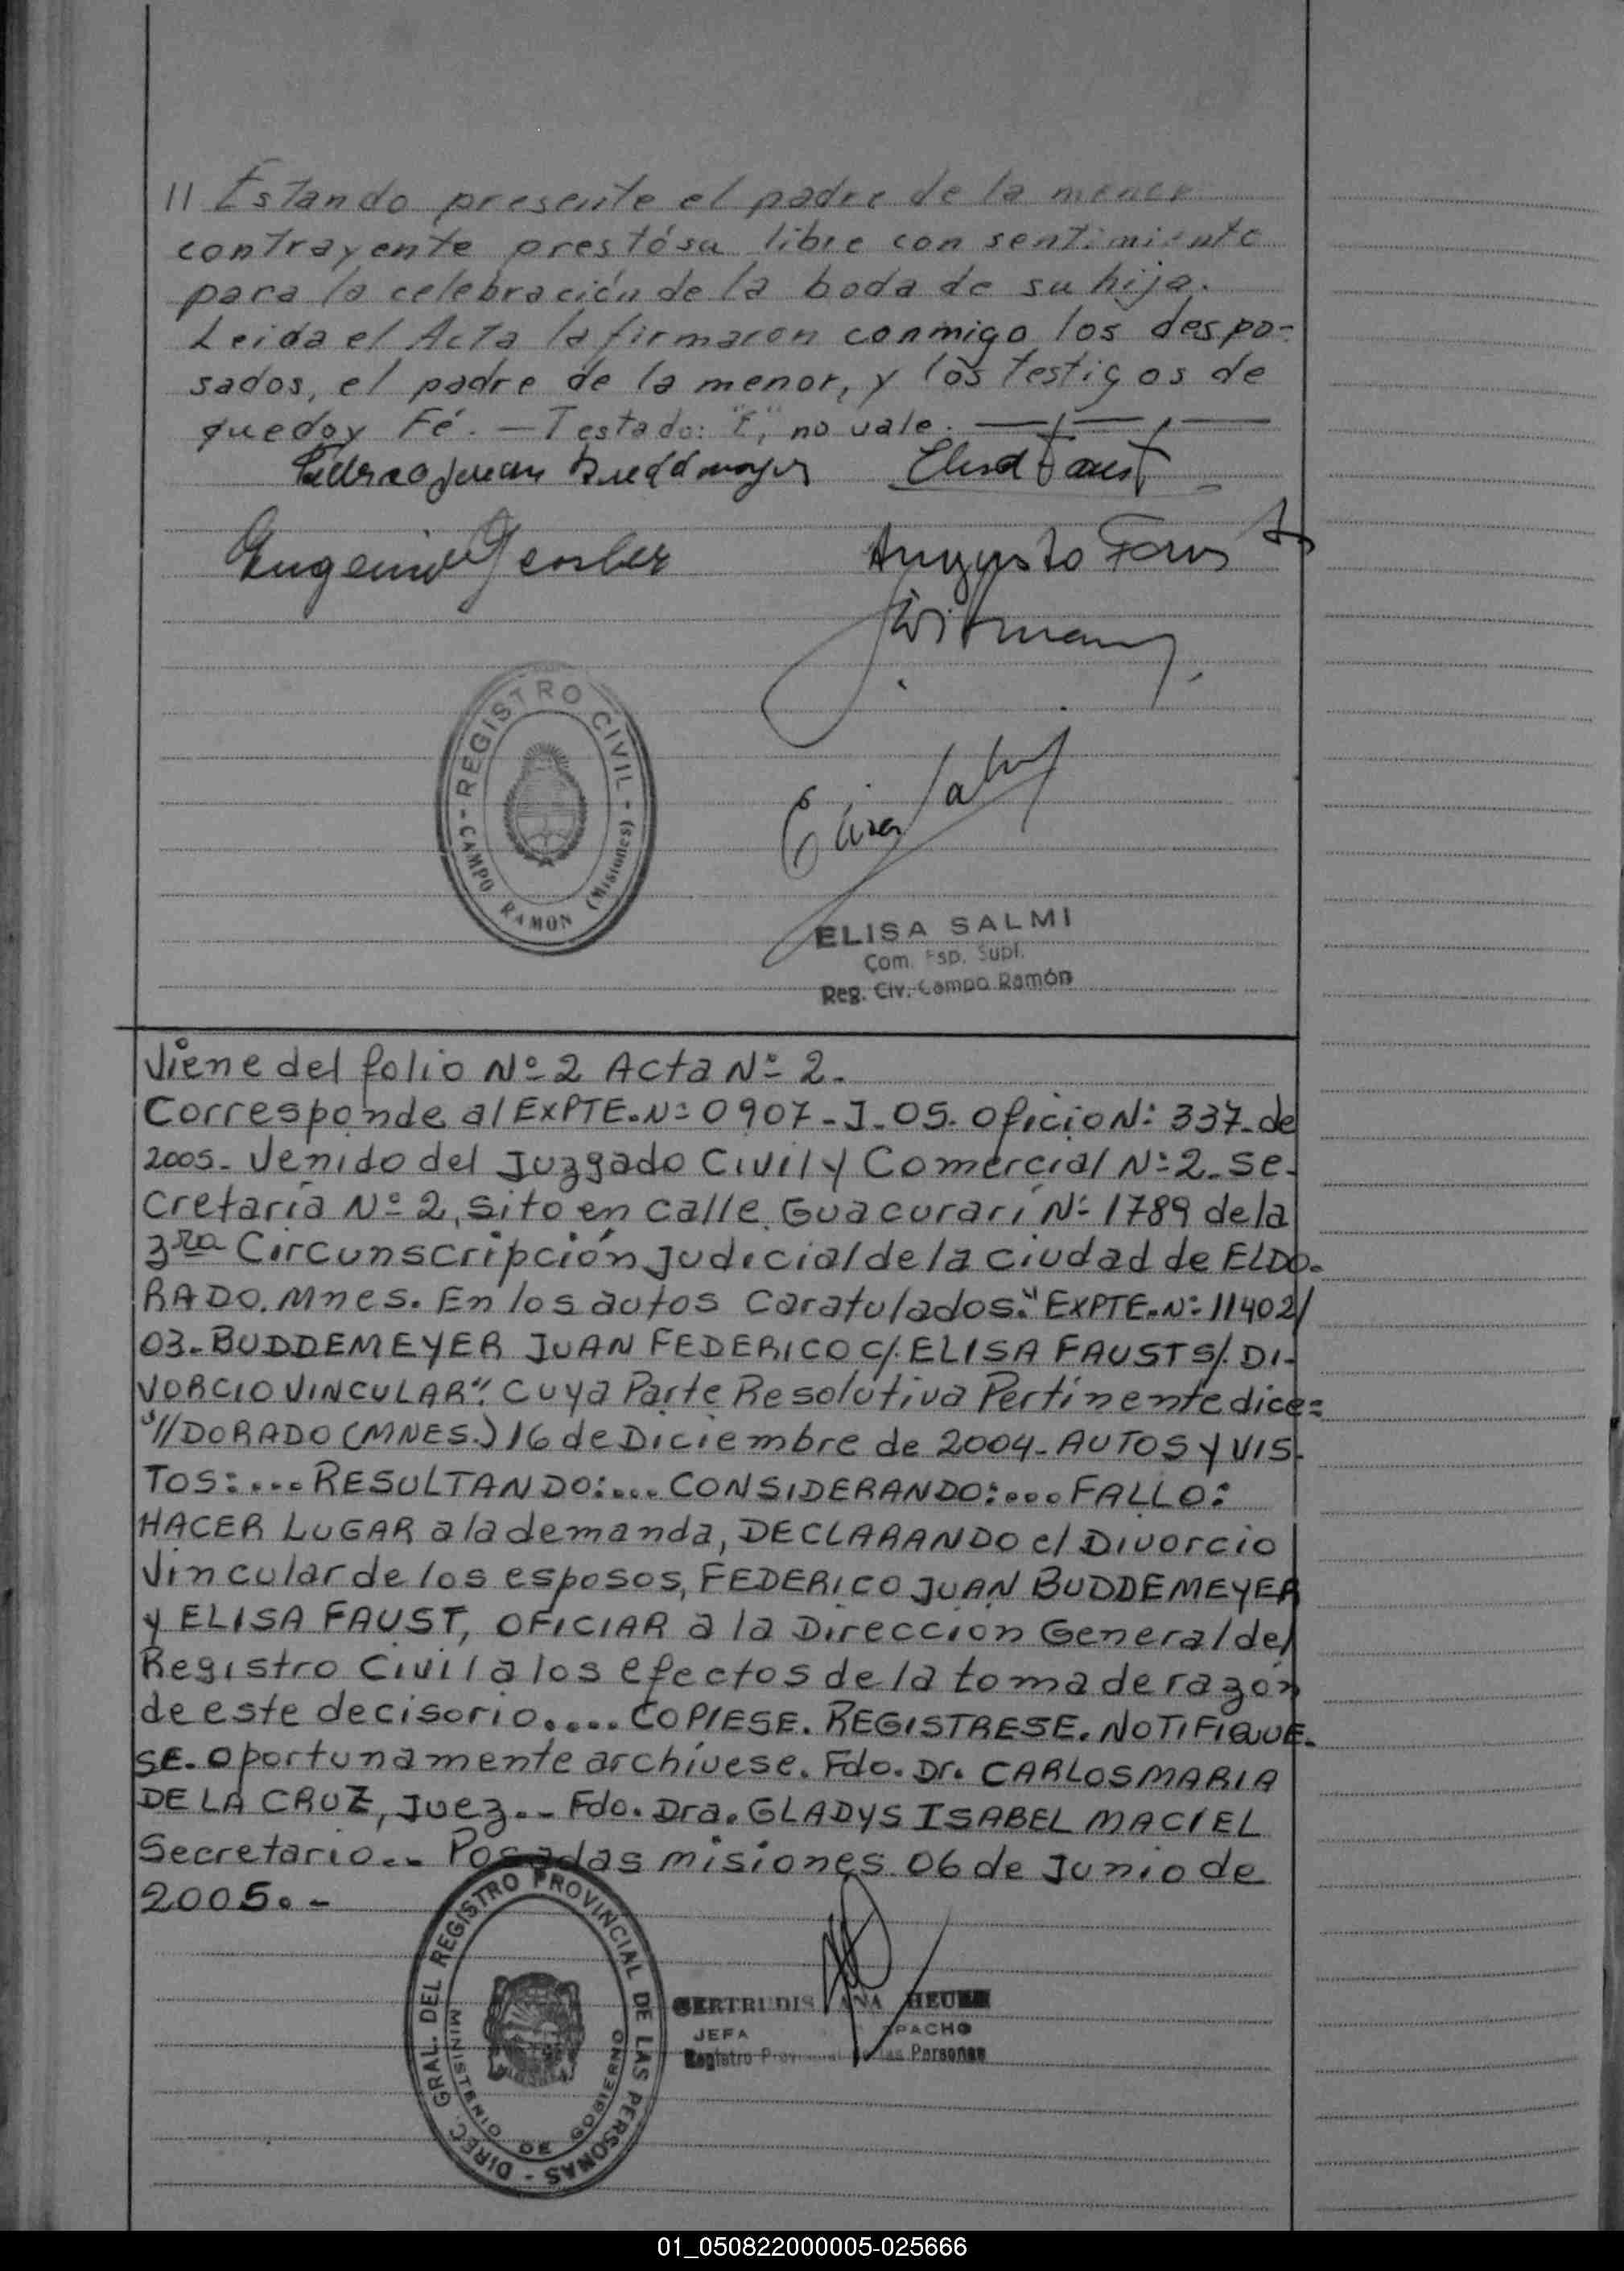 // Estando presente el padre de la menor
contrayente prestó su libre consentimiento
para la celebración de la boda de su hija.
Leida el Acta la firmaron conmigo los despo-
sados, el padre de la menor, y los testigos de
que doy Fé. — Testado: "E", no vale. —,—,—
Elisa Faust
Eugenio
Augusto Faust
REGISTRO CIVIL
- CAMPO RAMON (Misiones) -
Elisa Salmi
ELISA SALMI
Com. Esp. Supl.
Reg. Civ. Campo Ramón
Viene del folio Nº 2 Acta Nº 2.
Corresponde al EXPTE. Nº 0907-J-05. Oficio Nº 337- de
2005- Venido del Juzgado Civil y Comercial Nº 2- Se-
cretaría Nº 2, sito en calle Guacurarí Nº 1789 de la
3ra Circunscripción Judicial de la ciudad de ELDO-
RADO. Mnes. En los autos Caratulados: "EXPTE. Nº 11402/
03- BUDDEMEYER JUAN FEDERICO C/. ELISA FAUST S/. DI-
VORCIO VINCULAR". Cuya Parte Resolutiva Pertinente dice=
"//DORADO (MNES.) 16 de Diciembre de 2004- AUTOS y VIS-
TOS:... RESULTANDO:... CONSIDERANDO:... FALLO:
HACER LUGAR a la demanda, DECLARANDO el Divorcio
Vincular de los esposos, FEDERICO JUAN BUDDEMEYER
y ELISA FAUST, OFICIAR a la Dirección General del
Registro Civil a los efectos de la toma de razón
de este decisorio.... COPIESE. REGISTRESE. NOTIFIQUE-
SE. Oportunamente archívese. Fdo. Dr. CARLOS MARIA
DE LA CRUZ, Juez.- Fdo. Dra. GLADYS ISABEL MACIEL
Secretario.- Posadas misiones 06 de Junio de
2005.-
DIREC. GRAL. DEL REGISTRO PROVINCIAL DE LAS PERSONAS -
MINISTERIO DE GOBIERNO
GERTRUDIS ANA
JEFA
Registro Provincial de las Personas
01_050822000005-025666